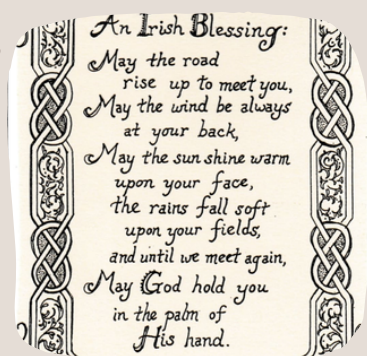 An Irish Blessing:
May the road
rise up to meet you,
May the wind be always
at your back,
May the sun shine warm
upon your face,
the rains fall soft
upon your fields,
and until we meet again,
May God hold you
in the palm of
His hand.